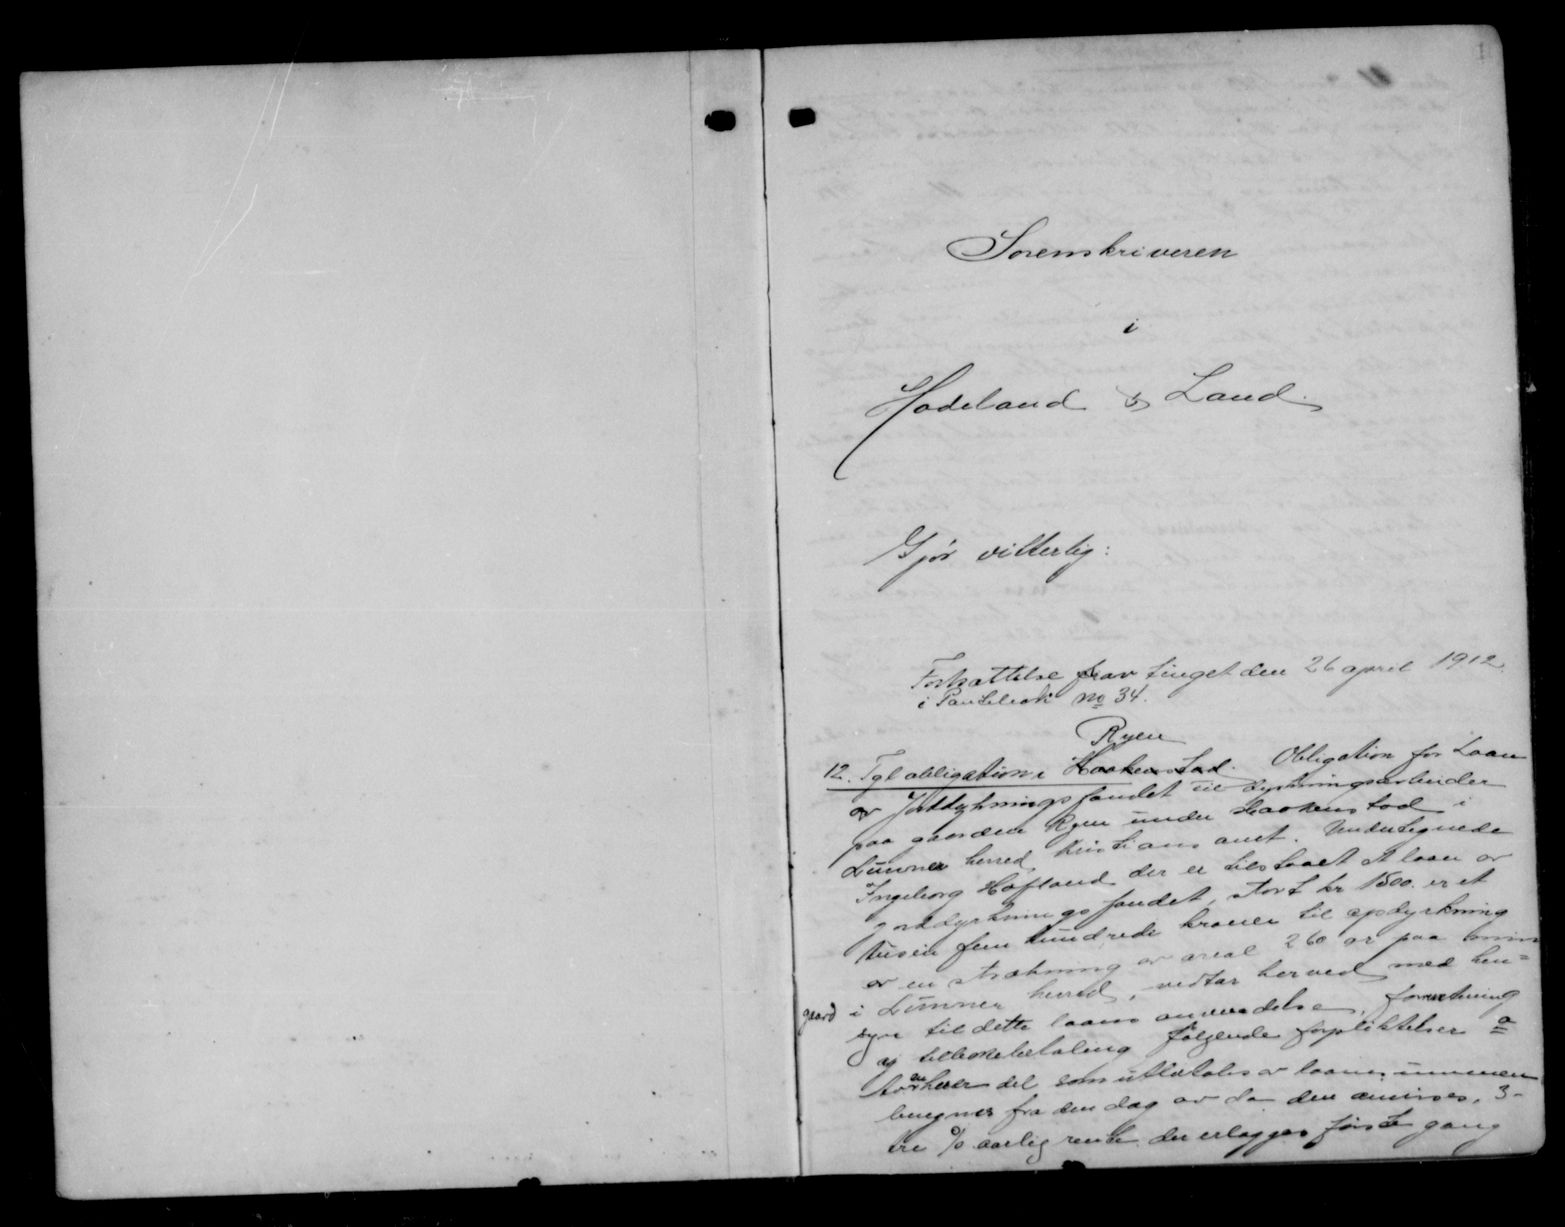 Sorenskriveren
i
Hadeland & Land.
Gjør vitterlig:
Fortsættelse frav tinget den 26 april 1912.
i Pantebok No 34.
Ryen
12. Tgl obligation i Haakenstad. Obligation for Laan
av Jorddyrkningsfondet til dyrkningsarbeider
paa gaarden Ryen under Haakenstad i
Lunner herred, Kristians amt. Undertegnede
Ingeborg Hofland der er tilstaaet et laan av
jorddyrkningsfondet, stort kr 1500. er et
tusin fem hundrede kroner til opdyrkning
av en strækning av areal 260 ar paa min
gaard i Lunner herred, vedtar herved med hen=
syn til dette laans anvendelse, forrentning
og tilbakebetaling følgende forpliktelser a
av hver del som utbetales av laanesummen
beregnes fra den dag av da den anvises, 3-
tre % aarlig rente der erlægges første gang